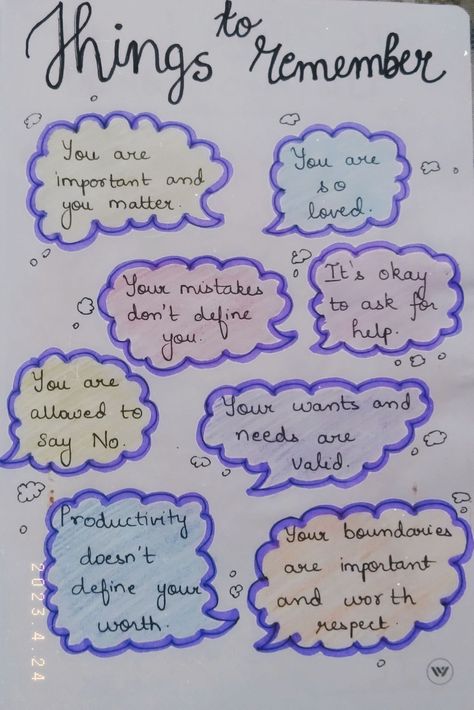 Things to remember
You are
important and
you matter.
You are
so
loved.
Your mistakes
don't define
you.
It's okay
to ask for
help.
You are
allowed to
say No.
Your wants and
needs are
valid.
Productivity
doesn't
define your
worth.
Your boundaries
are important
and worth
respect.
2023.4.24
W